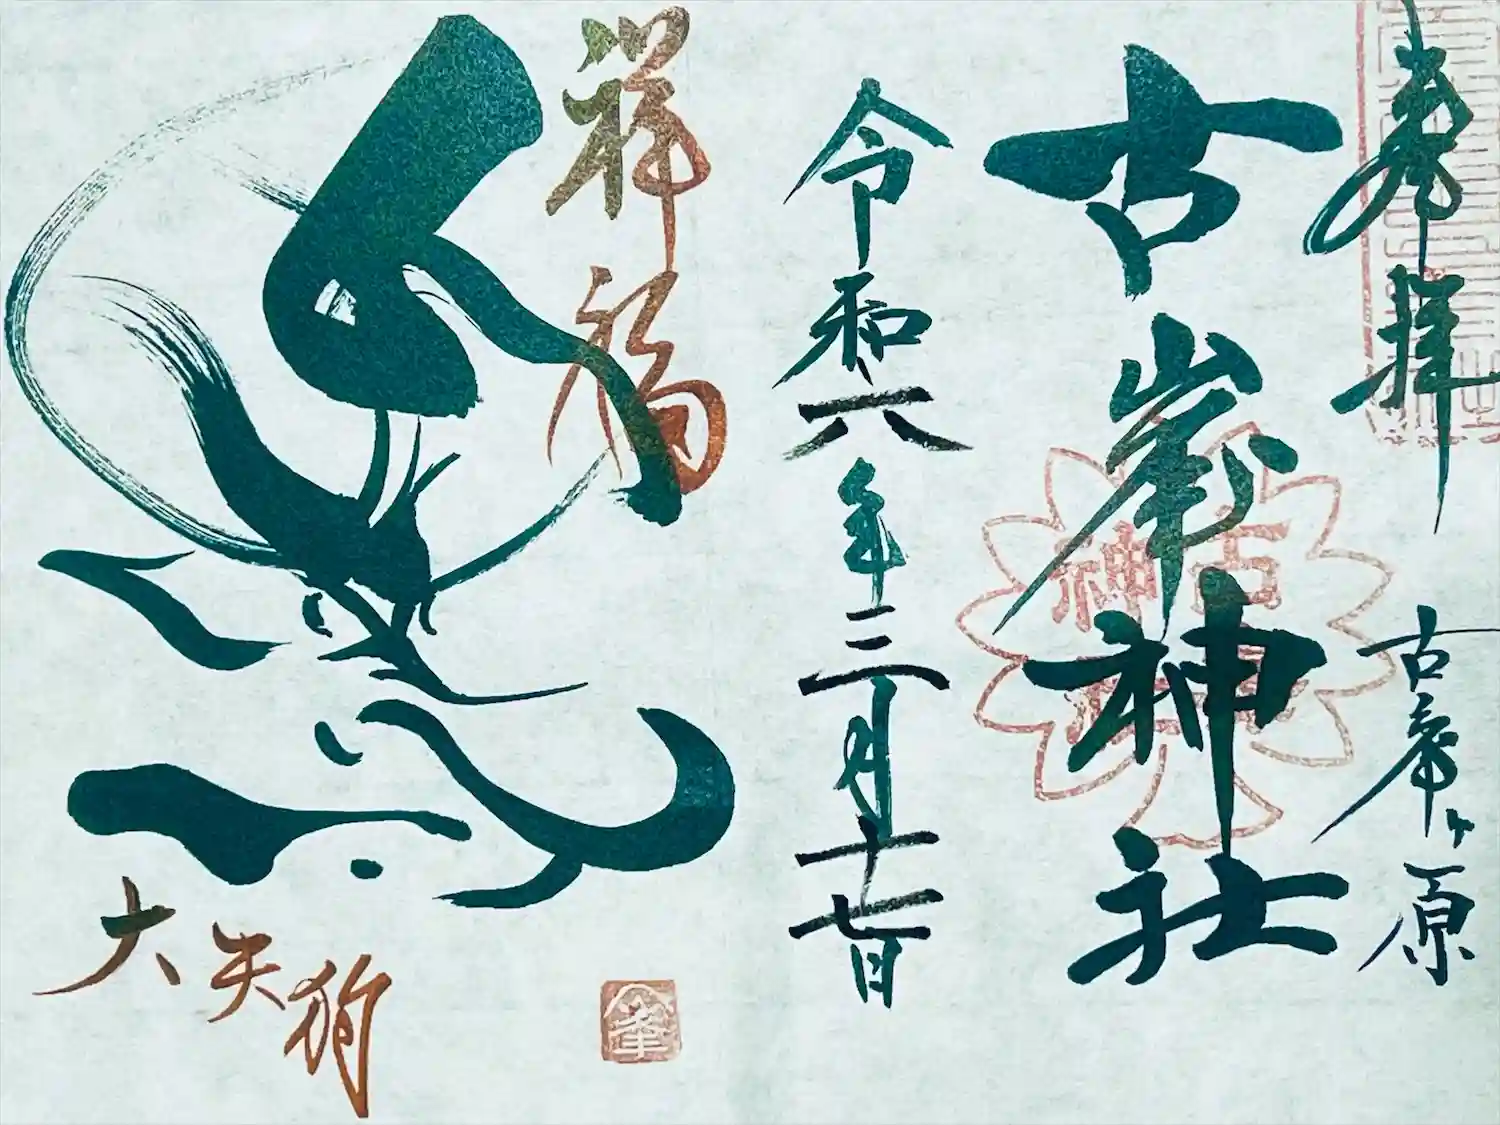 奉拝
古峯ヶ原
古峯神社
古峯
神社
令和六年三月十七日
祥福
大天狗
峯